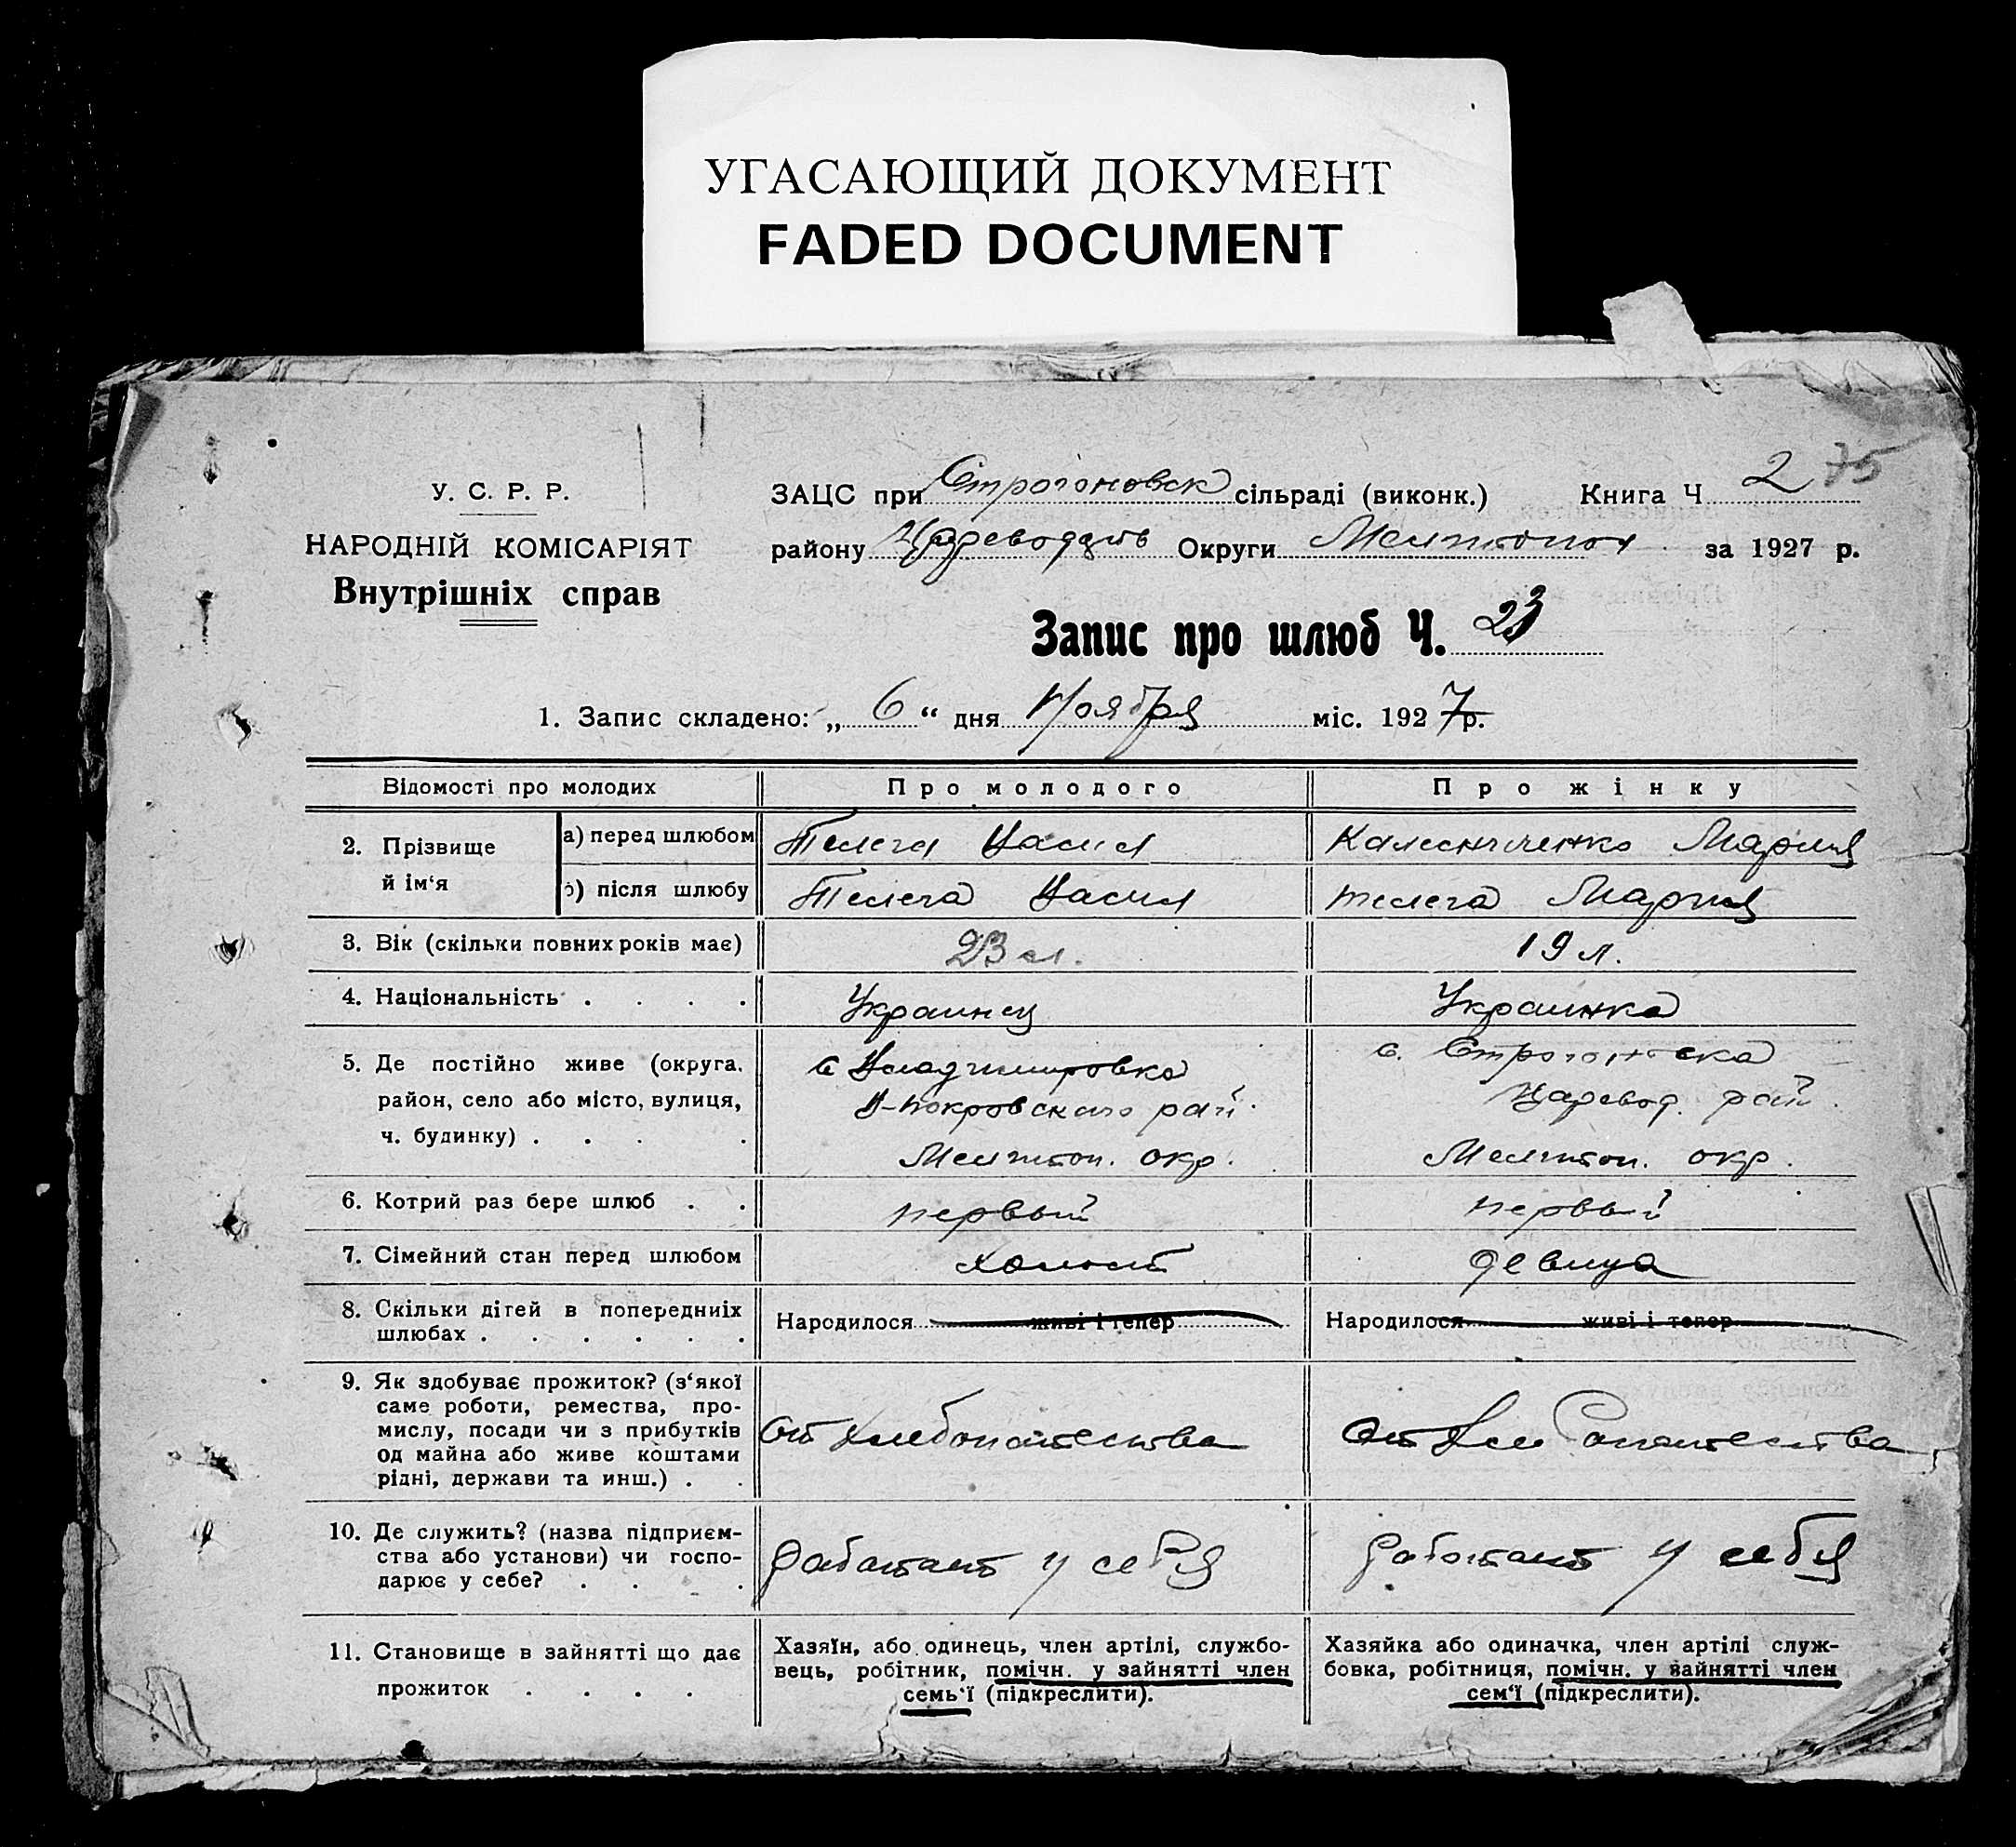 УГАСАЮЩИЙ ДОКУМЕНТ
FADED DOCUMENT
У. С. Р. Р.
НАРОДНІЙ КОМІСАРІЯТ
Внутрішніх справ
ЗАЦС при Строгоновск сільраді (виконк.) Книга Ч 2 75
району Округи Мелитопол за 1927 р.
Запис про шлюб Ч. 23
1. Запис складено: „ 6 “ дня Ноября міс. 192 7 р.
Відомості про молодих
Про молодого
Про жінку
2. Прізвище й ім‘я
а) перед шлюбом
Телега Васил
Калениченко Мария
б) після шлюбу
Телега Васил
телега Мария
3. Вік (скільки повних років має)
23 л.
19 л.
4. Національність . . . .
Украинец
Украинка
5. Де постійно живе (округа,
район, село або місто, вулиця,
ч. будинку) . . . .
с Владимировка
Н-покровского рай.
Мелитоп. окр.
с. Строгоновка
Царевод. рай.
Мелитоп. окр.
6. Котрий раз бере шлюб . .
первый
первый
7. Сімейний стан перед шлюбом
холост
девица
8. Скільки дітей в попередниіх
шлюбах . . . . . .
Народилося живі і тепер
Народилося живі і тепер
9. Як здобуває прожиток? (з‘якої
саме роботи, ремества, про-
мислу, посади чи з прибутків
од майна або живе коштами
рідні, держави та инш.) . .
от хлебопашества
от хлебопашества
10. Де служить? (назва підприєм-
ства або установи) чи госпо-
дарює у себе? . . .
работает у себя
работает у себя
11. Становище в зайнятті що дає
прожиток . . . .
Хазяїн, або одинець, член артілі, службо-
вець, робітник, помічн. у зайнятті член
семь‘ї (підкреслити).
Хазяйка або одиначка, член артілі служ-
бовка, робітниця, помічн. у зайнятті член
сем‘ї (підкреслити).